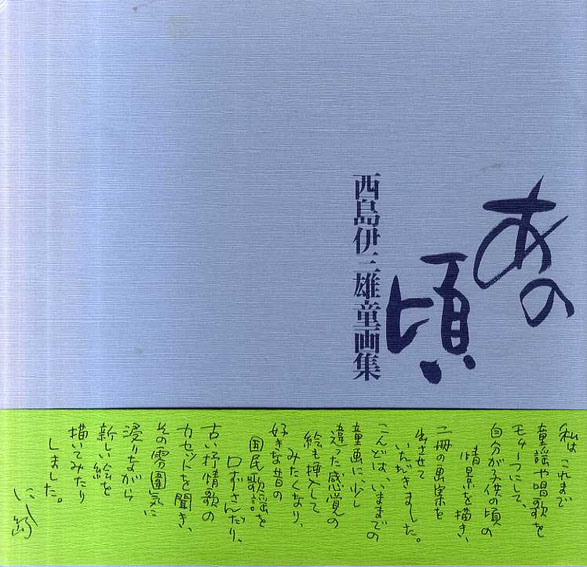 あの
頃
西島伊三雄童画集
私は これまで
童謡や唱歌を
モチーフにして、
自分が子供の頃の
情景を描き、
二冊の画集を
出させて
いただきました。
こんどは、いままでの
童画に少し
違った感覚の
絵も挿入して
みたくなり、
好きな昔の
国民歌謡を
口ずさんだり、
古い抒情歌の
カセットを聞き、
その雰囲気に
浸りながら
新しい絵を
描いてみたり
しました。